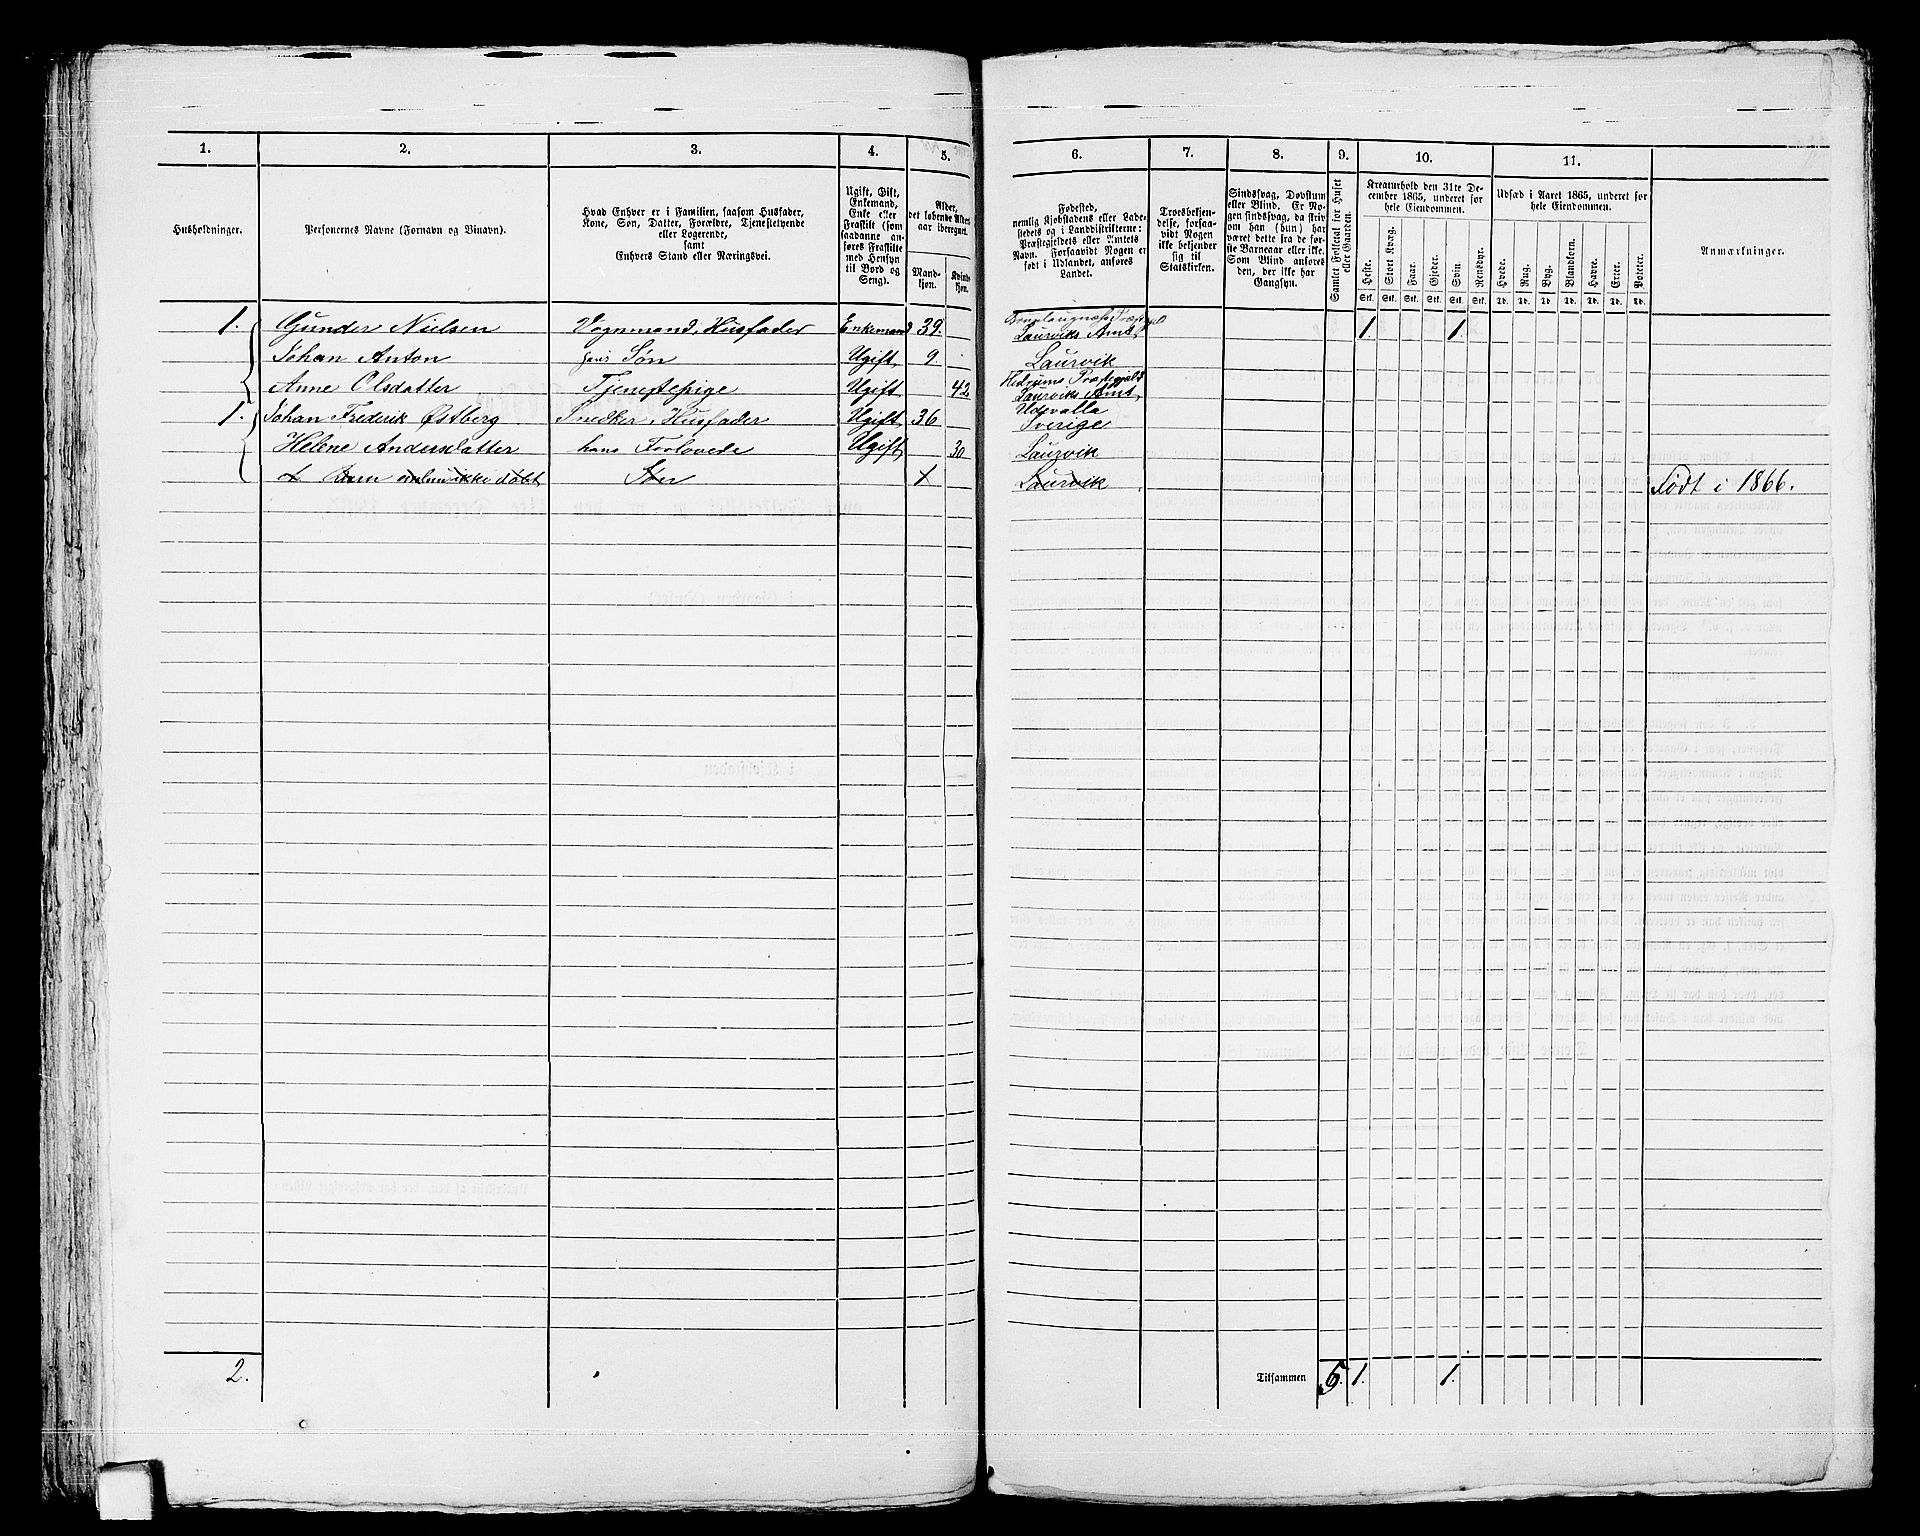 1. 2. 3. 4. 5. 6. 7. 8. 9. 10. 11.
Husholdninger.
Personernes Navne (Fornavn og Vinavn).
Hvad Enhver er i Familien, saasom Husfader,
Kone, Søn, Datter, Forældre, Tjenestetyende
eller Logerende,
samt
Enhvers Stand eller Næringsvei.
Ugift, Gift,
Enkemand,
Enke eller
Fraskilt (som
saadanne an-
føres Fraskilte
med Hensyn
til Bord og
Seng).
Alder,
det løbende Alders-
aar iberegnet.
Mand-
kjøn.
Kvinde-
kjøn.
Fødested,
nemlig Kjøbstadens eller Lade-
stedets og i Landdistrikterne:
Præstegjeldets eller Amtets
Navn. Forsaavidt Nogen er
født i Udlandet, anføres
Landet.
Troesbekjen-
delse, forsaa-
vidt Nogen
ikke bekjender
sig til
Statskirken.
Sindssvag, Døvstum
eller Blind. Er No-
gen sindssvag, da skriv
om han (hun) har
været dette fra de før-
ste Barneaar eller ikke.
Som Blind anføres
den, der ikke har
Gangsyn.
Samlet Folketal for Huset
eller Gaarden.
Kreaturhold den 31te De-
cember 1865, underet før
hele Eiendommen.
Heste. Stort Kvæg. Faar. Gjeder. Svin. Rensdyr.
Stk. Stk. Stk. Stk. Stk. Stk.
Udsæd i Aaret 1865, underet før
hele Eiendommen.
Hvede. Rug. Byg. Blandkorn. Havre. Erter. Poteter.
Td. Td. Td. Td. Td. Td. Td.
Anmærkninger.
1. Gunder Nielsen Vognmand, Husfader Enkemand 39. Laurviks Amt, 1. 1.
Johan Anton hans Søn Ugift, 9. Laurvik
Anne Olsdatter Tjenestepige Ugift, 42 Hedrums Præstegjeld Laurviks Amt,
1. Johan Frederik Østberg Snedker, Husfader Ugift, 36 Udevalla Sverige
Helene Andersdatter hans Forlovede Ugift, 30 Laurvik
ikke døbt Søn 1 Laurvik Født i 1866.
2. Tilsammen 5. 1. 1.